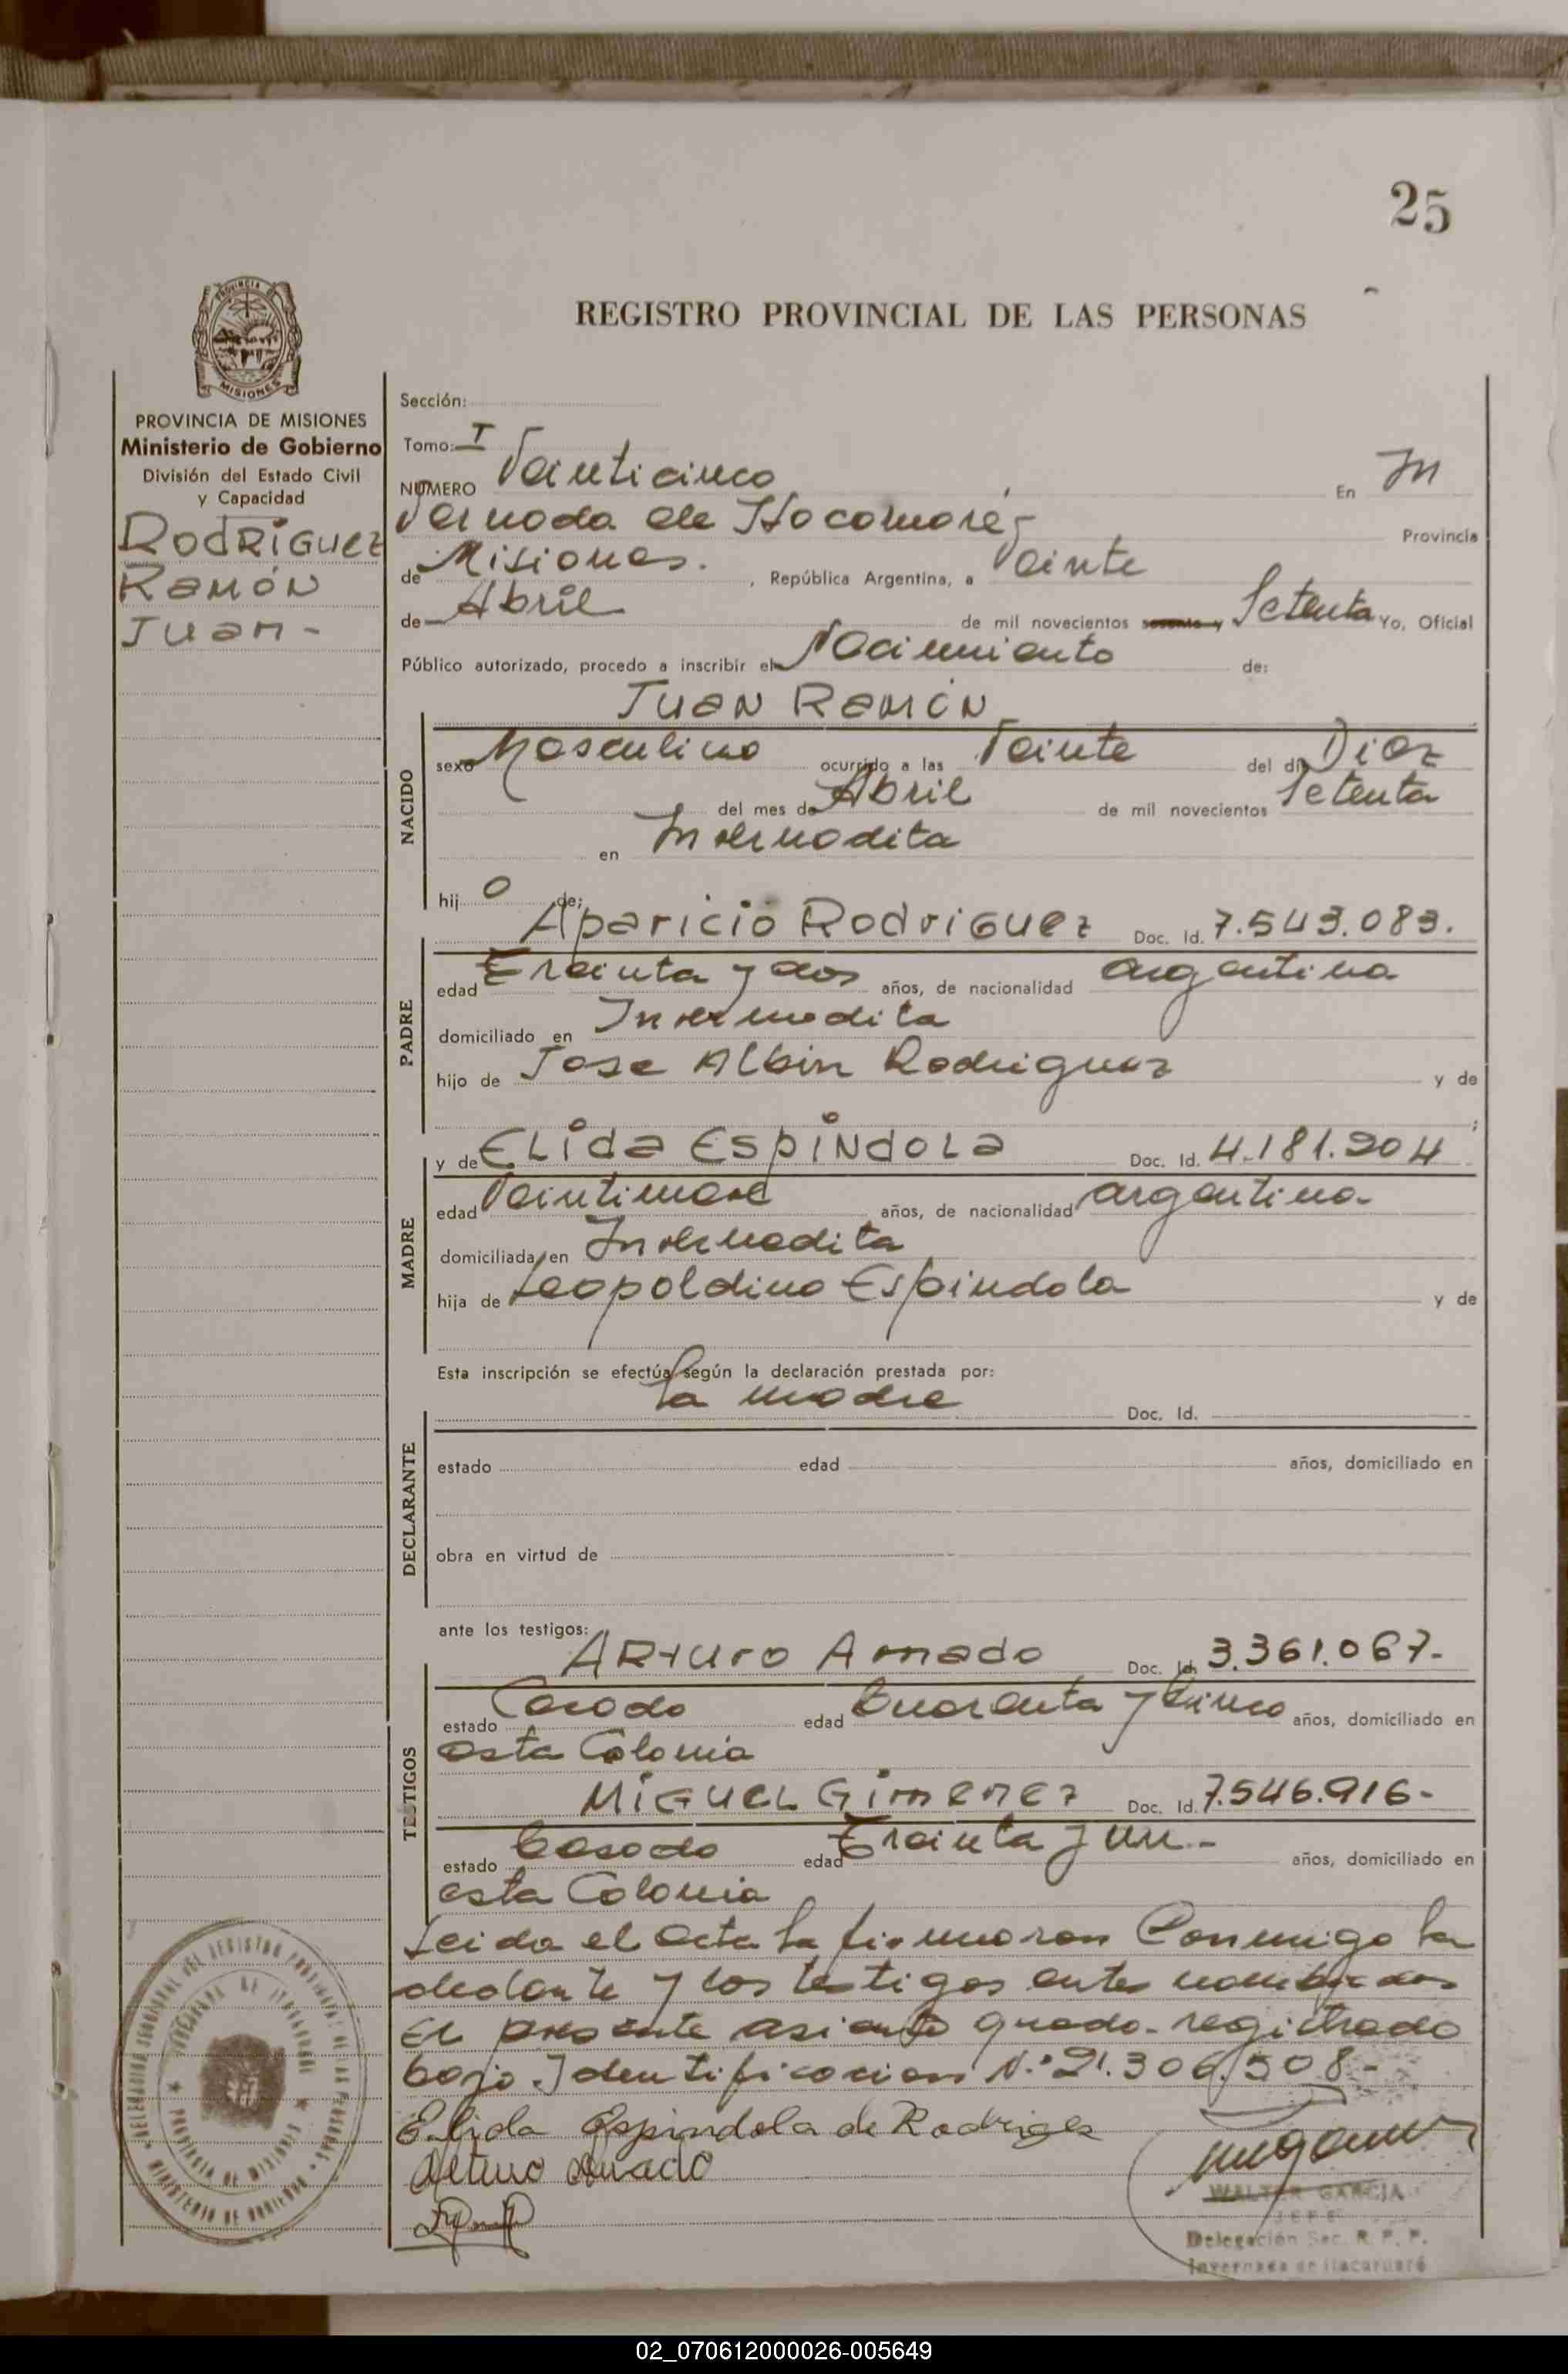 25
REGISTRO PROVINCIAL DE LAS PERSONAS
PROVINCIA DE
MISIONES
PROVINCIA DE MISIONES
Ministerio de Gobierno
División del Estado Civil
y Capacidad
RodRíGuez
Ramón
Juan-
Sección:
Tomo: I
NUMERO Veinticinco En In
vernada de Itacaruaré, Provincia
de Misiones. , República Argentina, a Veinte
de Abril de mil novecientos sesenta y Setenta Yo, Oficial
Público autorizado, procedo a inscribir el Nacimiento de:
Juan Ramón
NACIDO
sexo Masculino ocurrido a las Veinte del día Diez
del mes de Abril de mil novecientos Setenta
en Invernadita
hij o de:
Aparicio Rodriguez Doc. Id. 7.543.083.
PADRE
edad Treinta y dos años, de nacionalidad argentina
domiciliado en Invernadita
hijo de Jose Albin Rodriguez y de
y de ELida Espíndola Doc. Id. 4.181.904
MADRE
edad Veintinueve años, de nacionalidad argentina
domiciliada en Invernadita
hija de Leopoldino Espindola y de
Esta inscripción se efectúa según la declaración prestada por:
la madre Doc. Id.
DECLARANTE
estado edad años, domiciliado en
obra en virtud de
ante los testigos:
ARturo Amado Doc. Id. 3.361.067-
TESTIGOS
estado Casado edad Cuarenta y Cinco años, domiciliado en
esta Colonia
MiGueL Gimenez Doc. Id. 7.546.916-
estado Casado edad Treinta y un- años, domiciliado en
esta Colonia
Leida el acta la firmaron Conmigo la
y los testigos antes nombrados
El presente asiento quedo registrado
bajo Identificacion N.º 21.306.508-
Elida Espindola de Rodrigez
Arturo Amado
WALTER GARCIA
JEFE
Delegación Sec. R. P. P.
Invernada de Itacaruaré
02_070612000026-005649